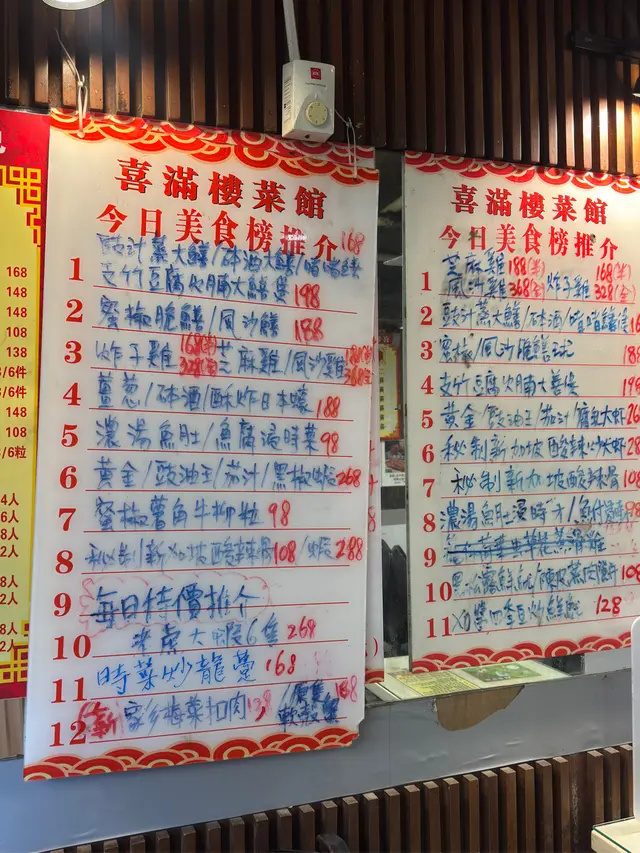 168
148
148
108
138
/6件
148
108
/6粒
4人
6人
8人
2人
8人
2人
8人
2人
喜滿樓菜館
今日美食榜推介
1 豉汁蒸大鱔/砵酒大鱔/啫啫 168
支竹豆腐火腩大鱔煲 198
2 蜜椒脆鱔/風沙鱔 188
3 炸子雞 168(半) 328(全) 芝麻雞/風沙雞 188(半) 368(全)
4 薑葱/砵酒/酥炸日本蠔 188
5 濃湯魚肚/魚腐浸時菜 98
6 黃金/豉油王/茄汁/黑椒蝦 268
7 蜜椒薯角牛柳粒 98
8 秘制新加坡酸辣骨 108/蝦 288
9 每日特價推介
10 大蝦6隻 268
11 時菜炒龍躉 168
12 新 家鄉梅菜扣肉
喜滿樓菜館
今日美食榜推介
1 芝麻雞 188(半) 炸子雞 168(半)
風沙雞 368(全) 328(全)
2 豉汁蒸大鱔/砵酒/啫啫鱔煲
3 蜜椒/風沙脆鱔 188
4 支竹豆腐火腩大鱔煲
5 黃金/豉油王/茄汁/大蝦
6 秘制新加坡酸辣炒大蝦
7 秘制新加坡酸辣骨 108
8 濃湯魚肚浸時菜/
9
10 108
11 四季豆炒 128